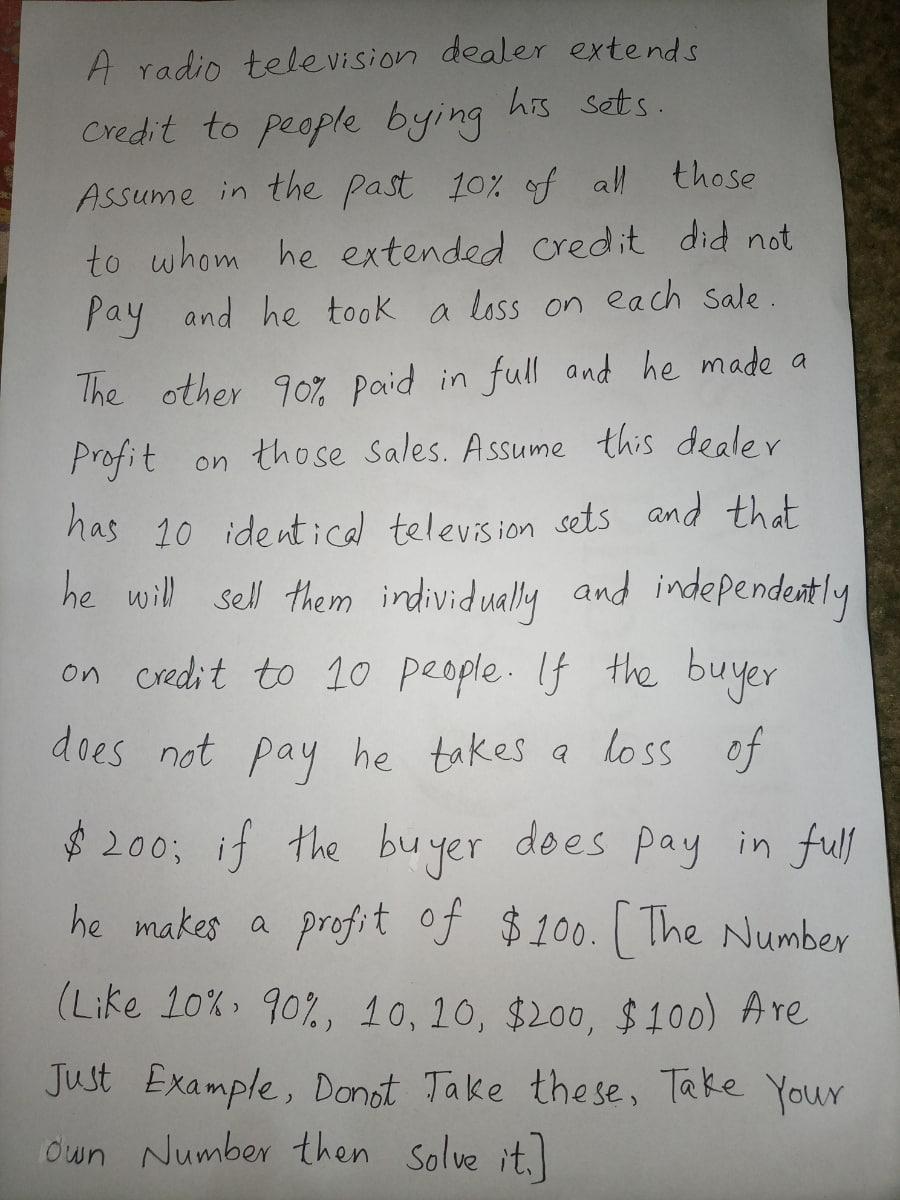 A radio television dealer extends
credit to people bying his sets.
Assume in the past 10% of all those
to whom he extended credit did not
Pay and he took a loss on each sale.
The other 90% paid in full and he made a
Profit on those sales. Assume this dealer
has 10 identical television sets and that
he will sell them individually and independently
on credit to 10 people. If the buyer
does not pay he takes a loss of
$200; if the buyer does pay in full
he makes a profit of $100. [The Number
(Like 10%, 90%, 10, 10, $200, $100) Are
Just Example, Donot Take these, Take Your
Own Number then Solve it.]